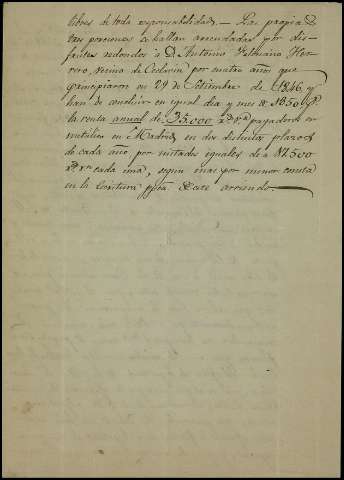 libres de toda responsabilidad. — Las propiad
tres porciones se hallan arrendadas por dis-
frutes redondos á D. Antonio Feliciano Her-
rero, vecino de Ceclavin por cuatro años que
principiaron en 29 de Setiembre de 1846, y
han de concluir en igual dia y mes de 1850 p.r
la renta anual de 35.000 r.s v.n pagaderos en
metálico en Madrid en dos distintos plazos
de cada año, por mitades iguales de á 17.500
r.s v.n cada una, segun mas por menor consta
en la Escritura p.ca de este arriendo.